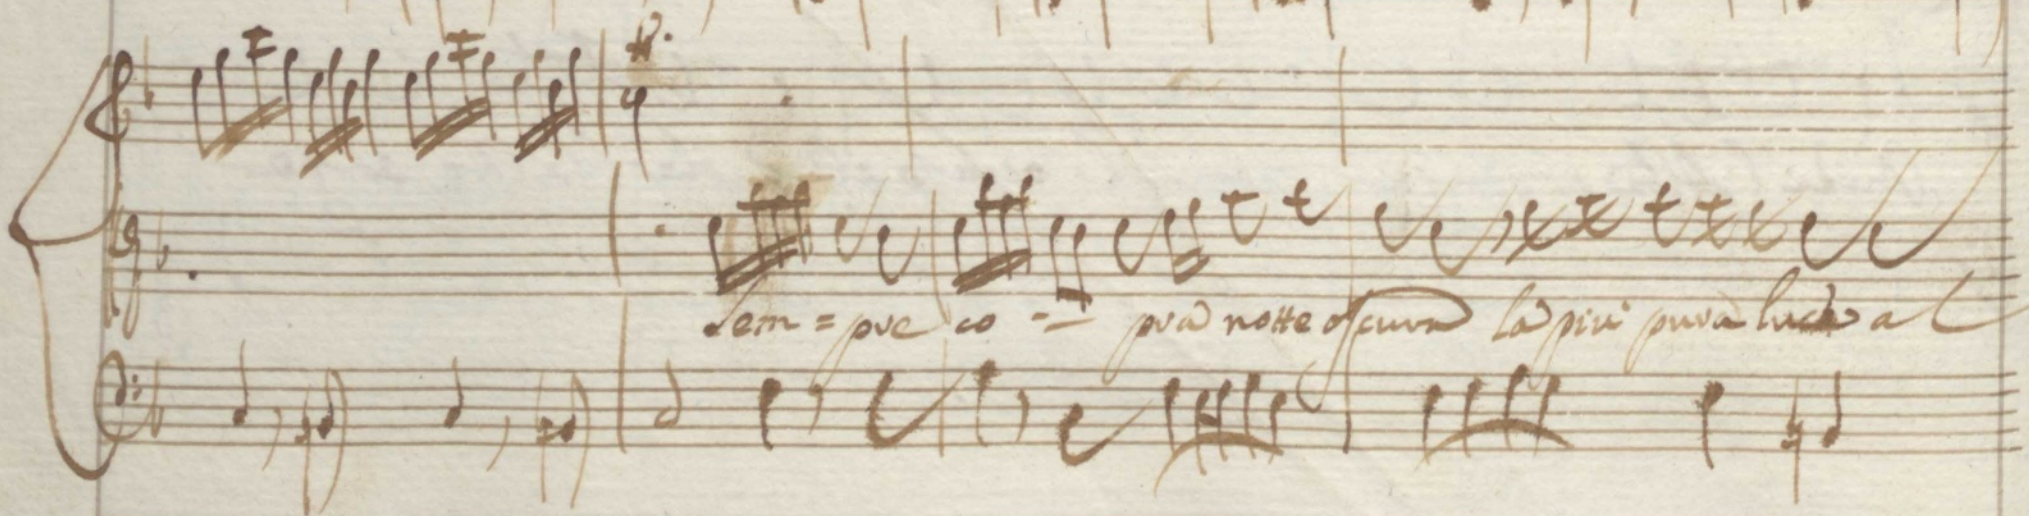 Sem = pre co - - pra notte oscura la più pura luce al